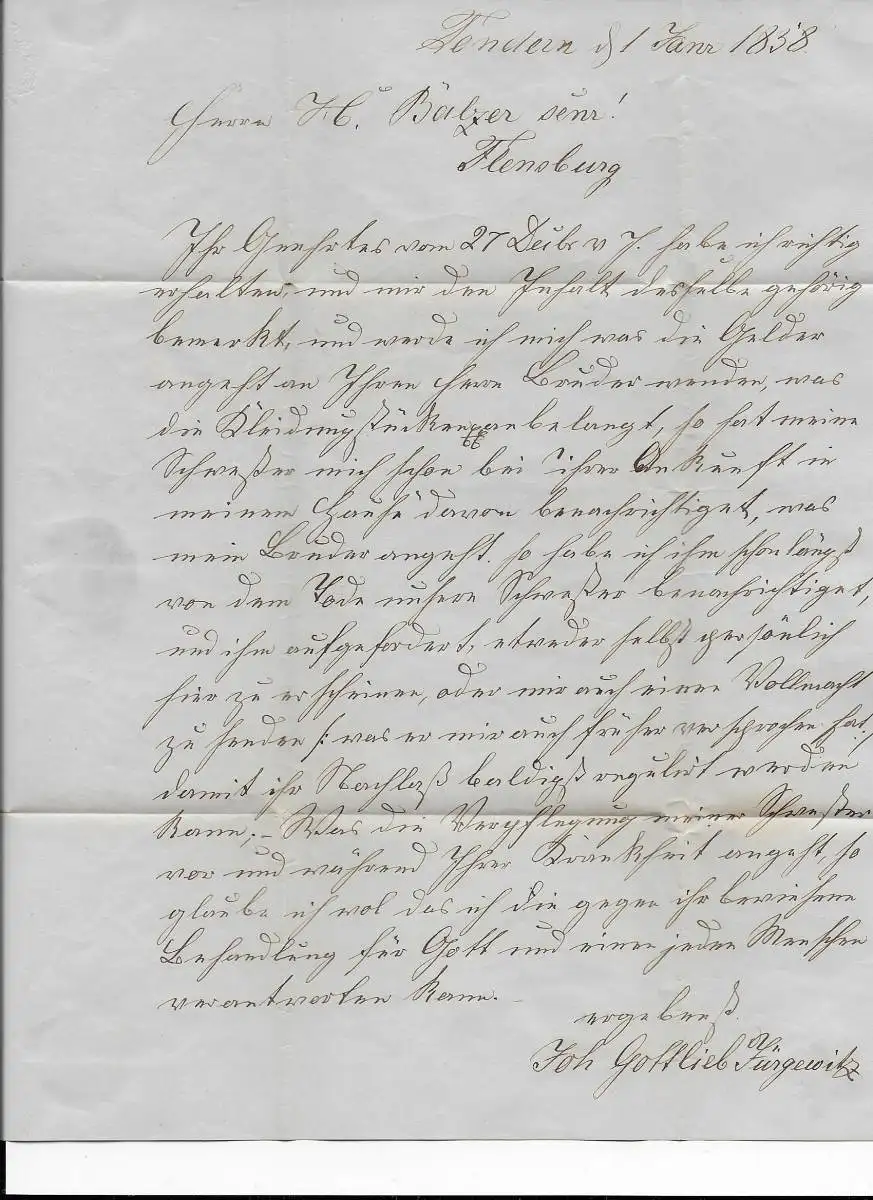 Tondern d 1 Janr 1858.
Herrn H. Balzer senr!
Flensburg
Ihr Geehrtes vom 27 Decbr v J. habe ich richtig
erhalten, und mir den Inhalt desselbe gehörig
bemerkt, und werde ich mich was die Gelder
angeht an Ihren Herrn Bruder wenden, was
die Kleidungstücken anbelangt, so hat meine
Schwester mich schon bei ihrer Ankunft in
meinem Hause davon benachrichtiget, was
mein Bruder angeht. so habe ich ihm schon längst
von dem Tode unsere Schwester benachrichtiget,
und ihm aufgefordert, etweder selbst persönlich
hier zu erscheinen, oder mir auch einen Vollmacht
zu senden /: was er mir auch früher versprochen hat :/
damit ihr Nachlaß baldigst regulirt werden
kann; – Was die Verpflegung meiner Schwester
vor und während Ihrer Krankheit angeht, so
glaube ich wol das ich die gegen ihr beviesene
Behandlung für Gott und einen jeden Menschen
verantworten kann. –
ergebenst
Joh Gottlieb Jürgewitz